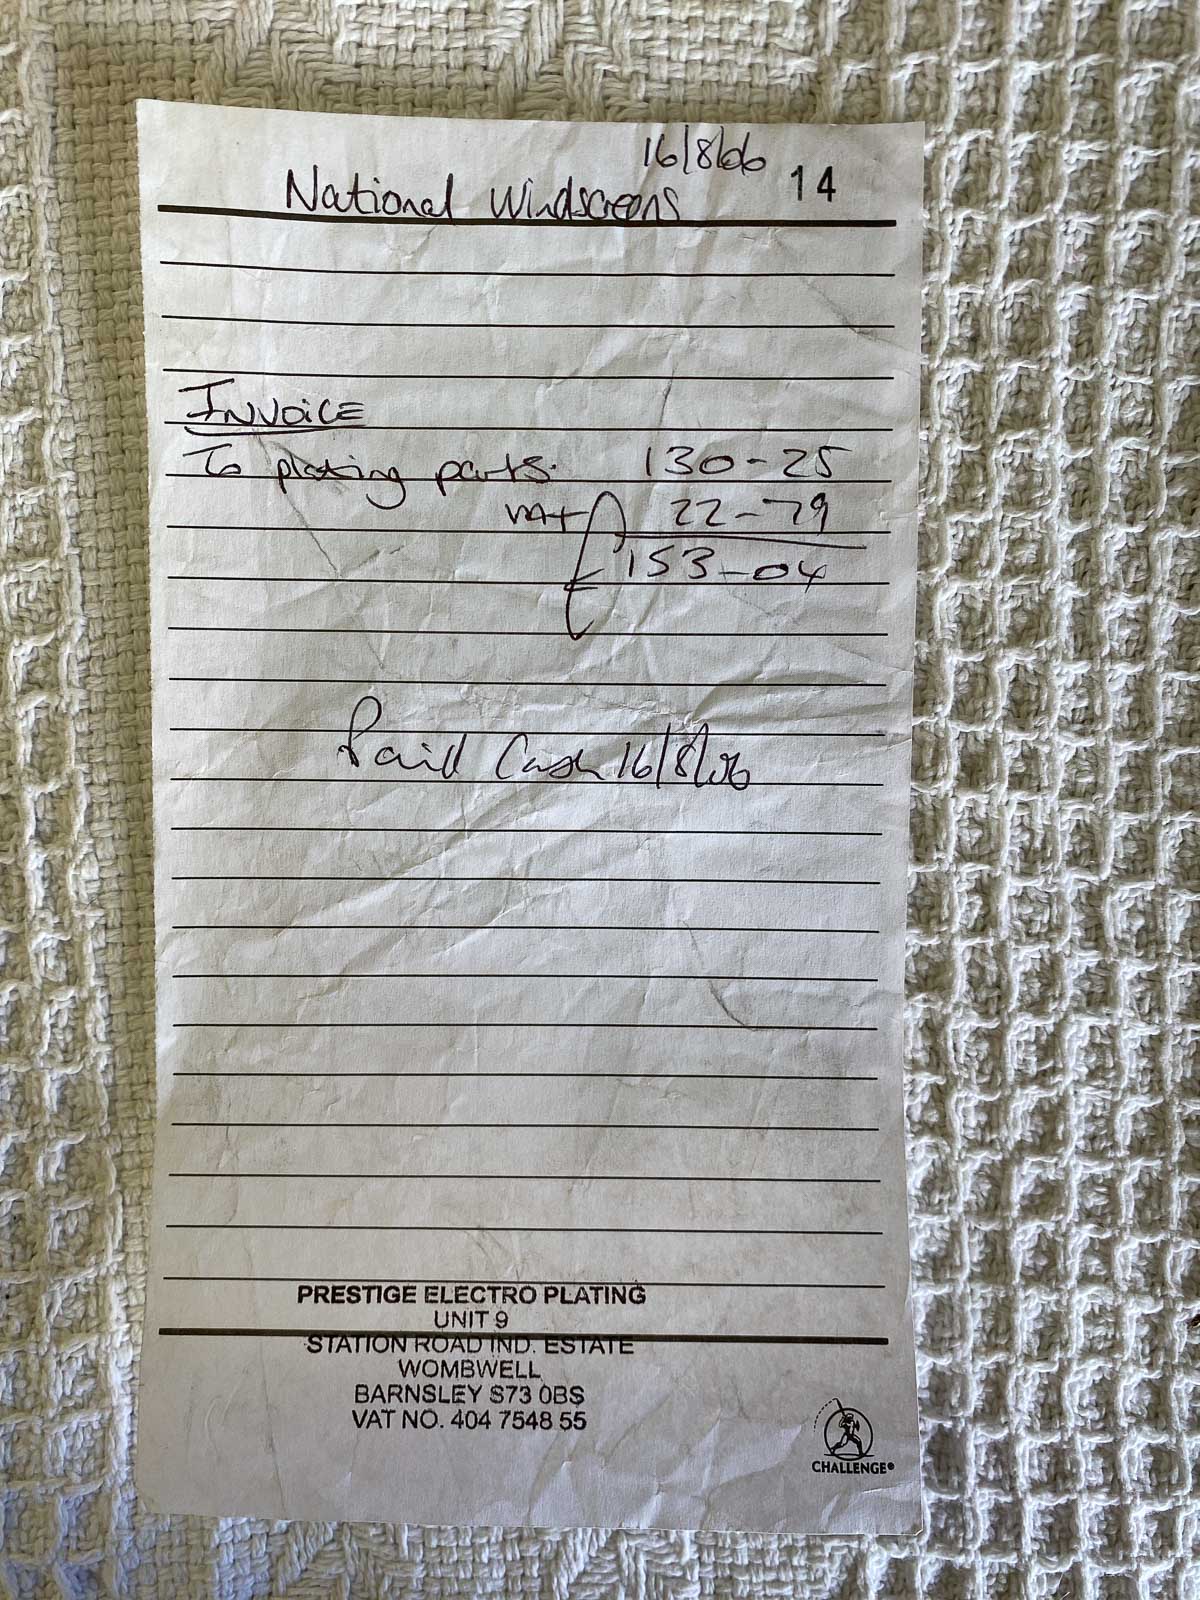 16/8/06
14
National Windscreens
INVOICE
To plating parts. 130-25
VAT 22-79
£ 153-04
Paid Cash 16/8/06
PRESTIGE ELECTRO PLATING
UNIT 9
STATION ROAD IND. ESTATE
WOMBWELL
BARNSLEY S73 0BS
VAT NO. 404 7548 55
CHALLENGE®